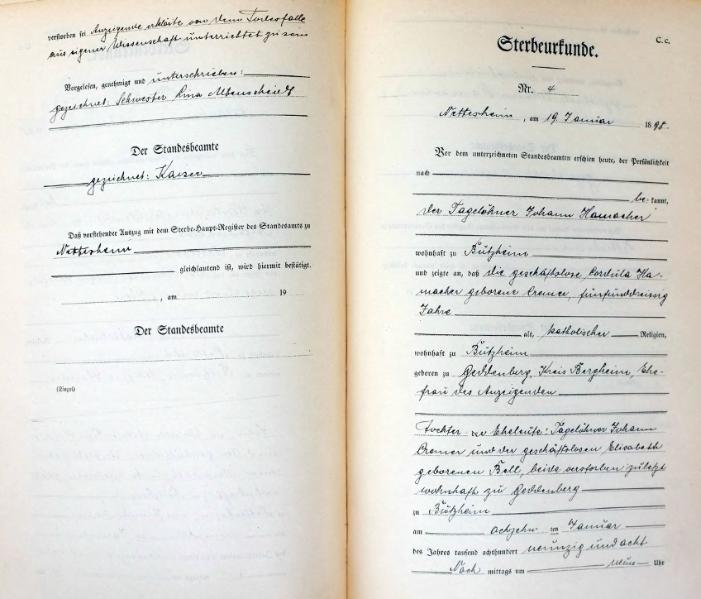 verstorben sei. Anzeigende erklärte von dem Todesfalle
aus eigener Wissenschaft unterrichtet zu sein
Vorgelesen, genehmigt und unterschrieben:
gezeichnet: Schwester Lina
Der Standesbeamte
gezeichnet: Kaiser
Daß vorstehender Auszug mit dem Sterbe-Haupt-Register des Standesamts zu
Nettesheim
gleichlautend ist, wird hiermit bestätigt.
, am 19
Der Standesbeamte
(Siegel)
C. c.
Sterbeurkunde.
Nr. 4
Nettesheim, am 19. Januar 1898.
Vor dem unterzeichneten Standesbeamten erschien heute, der Persönlichkeit
nach
be kannt,
der Tagelöhner Johann Hamacher
wohnhaft zu Bützheim
und zeigte an, daß die geschäftslose Cordula Ha-
macher geborene Cremer, fünfunddreissig
Jahre
alt, katholischer Religion,
wohnhaft zu Bützheim
geboren zu Geddenberg, Kreis Bergheim, Ehe-
frau des Anzeigenden
Tochter der Eheleute: Tagelöhner Johann
Cremer und der geschäftslosen Elisabeth
geborenen Bell, beide verstorben zuletzt
wohnhaft zu Geddenberg
zu Bützheim
am achzehn ten Januar
des Jahres tausend achthundert neunzig und acht
Nach mittags um neun Uhr